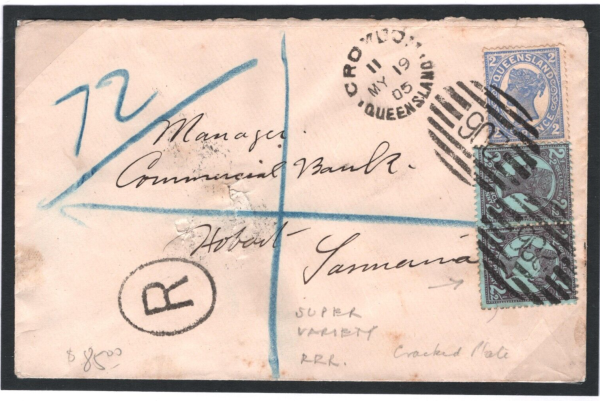 CROYDON
11
MY 19
05
QUEENSLAND
2 QUEENSLAND 2
72
Manager
Commercial Bank.
Hobart
Tasmania
R
SUPER
VARIETY
RRR.
Cracked Plate
$ 85.00
2½
2½